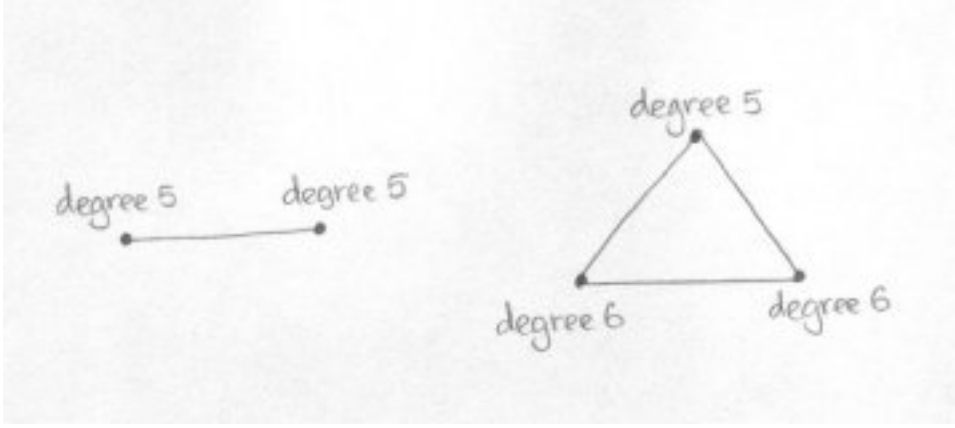 degree 5
degree 5
degree 5
degree 6
degree 6